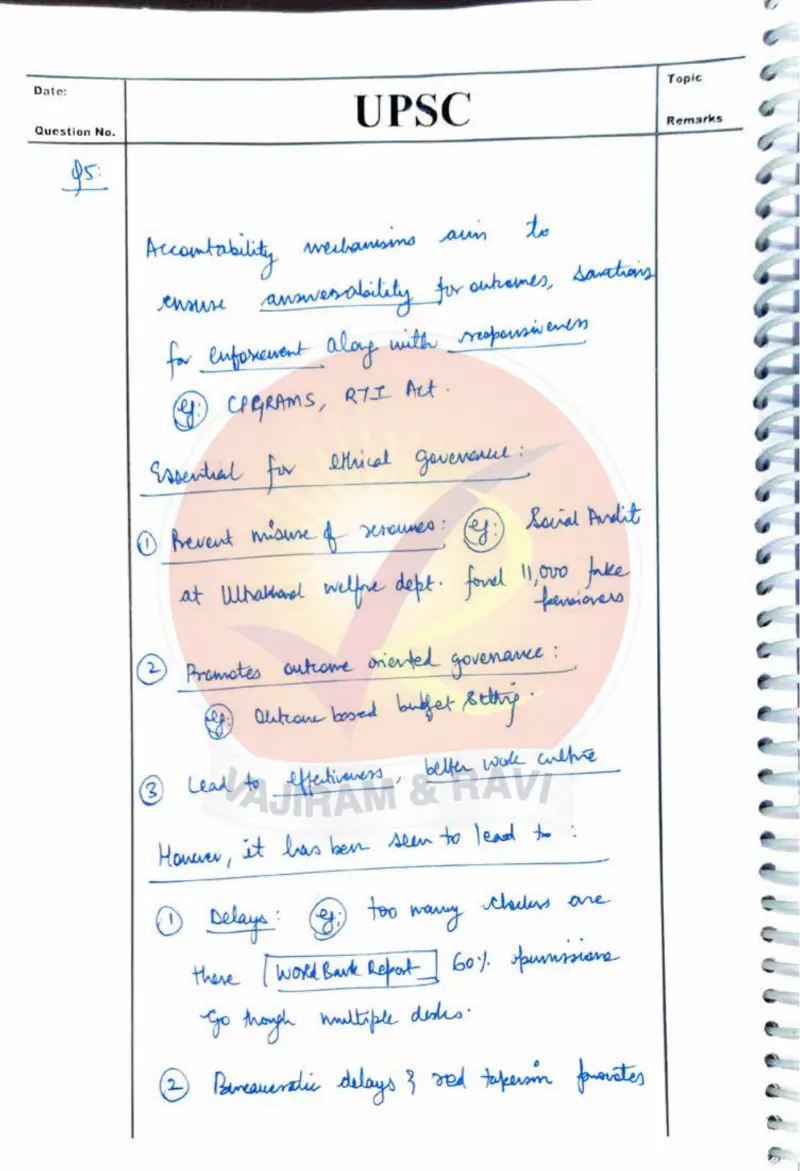 Date:
UPSC
Topic
Question No.
Remarks
Q5:
Accountability mechanisms aim to
ensure answerability for outcomes, sanctions
for enforcement along with responsiveness
eg: CPGRAMS, RTI Act.
Essential for ethical governance:
① Prevent misuse of resources: eg: Social Audit
at Uttarakhand welfare dept. found 11,000 fake
pensioners
② Promotes outcome oriented governance:
eg: Outcome based budget setting.
③ Lead to effectiveness, better work culture
VAJIRAM & RAVI
However, it has been seen to lead to:
① Delays: eg: too many checkers are
there World Bank Report 60% permissions
Go through multiple desks.
② Bureaucratic delays & red tapeism